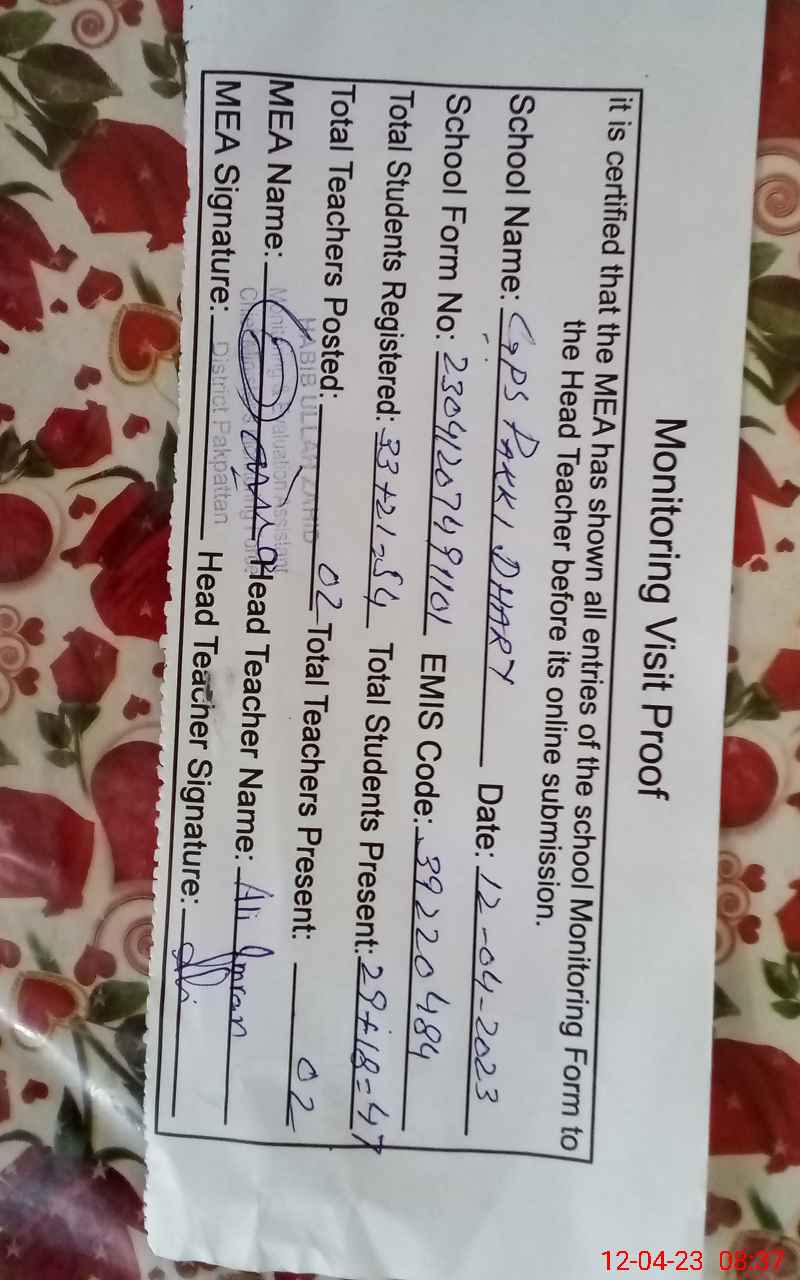 Monitoring Visit Proof
it is certified that the MEA has shown all entries of the school Monitoring Form to
the Head Teacher before its online submission.
School Name: GPS PAKKI DHARY Date: 12-04-2023
School Form No: 23041207491101 EMIS Code: 39220484
Total Students Registered: 33+21=54 Total Students Present: 29+18=47
Total Teachers Posted: 02 Total Teachers Present: 02
HABIB ULLAH ZAHID
Monitoring & Evaluation Assistant
MEA Name: Head Teacher Name: Ali Imran
District Pakpattan
MEA Signature: Head Teacher Signature: Ali
12-04-23 08:37